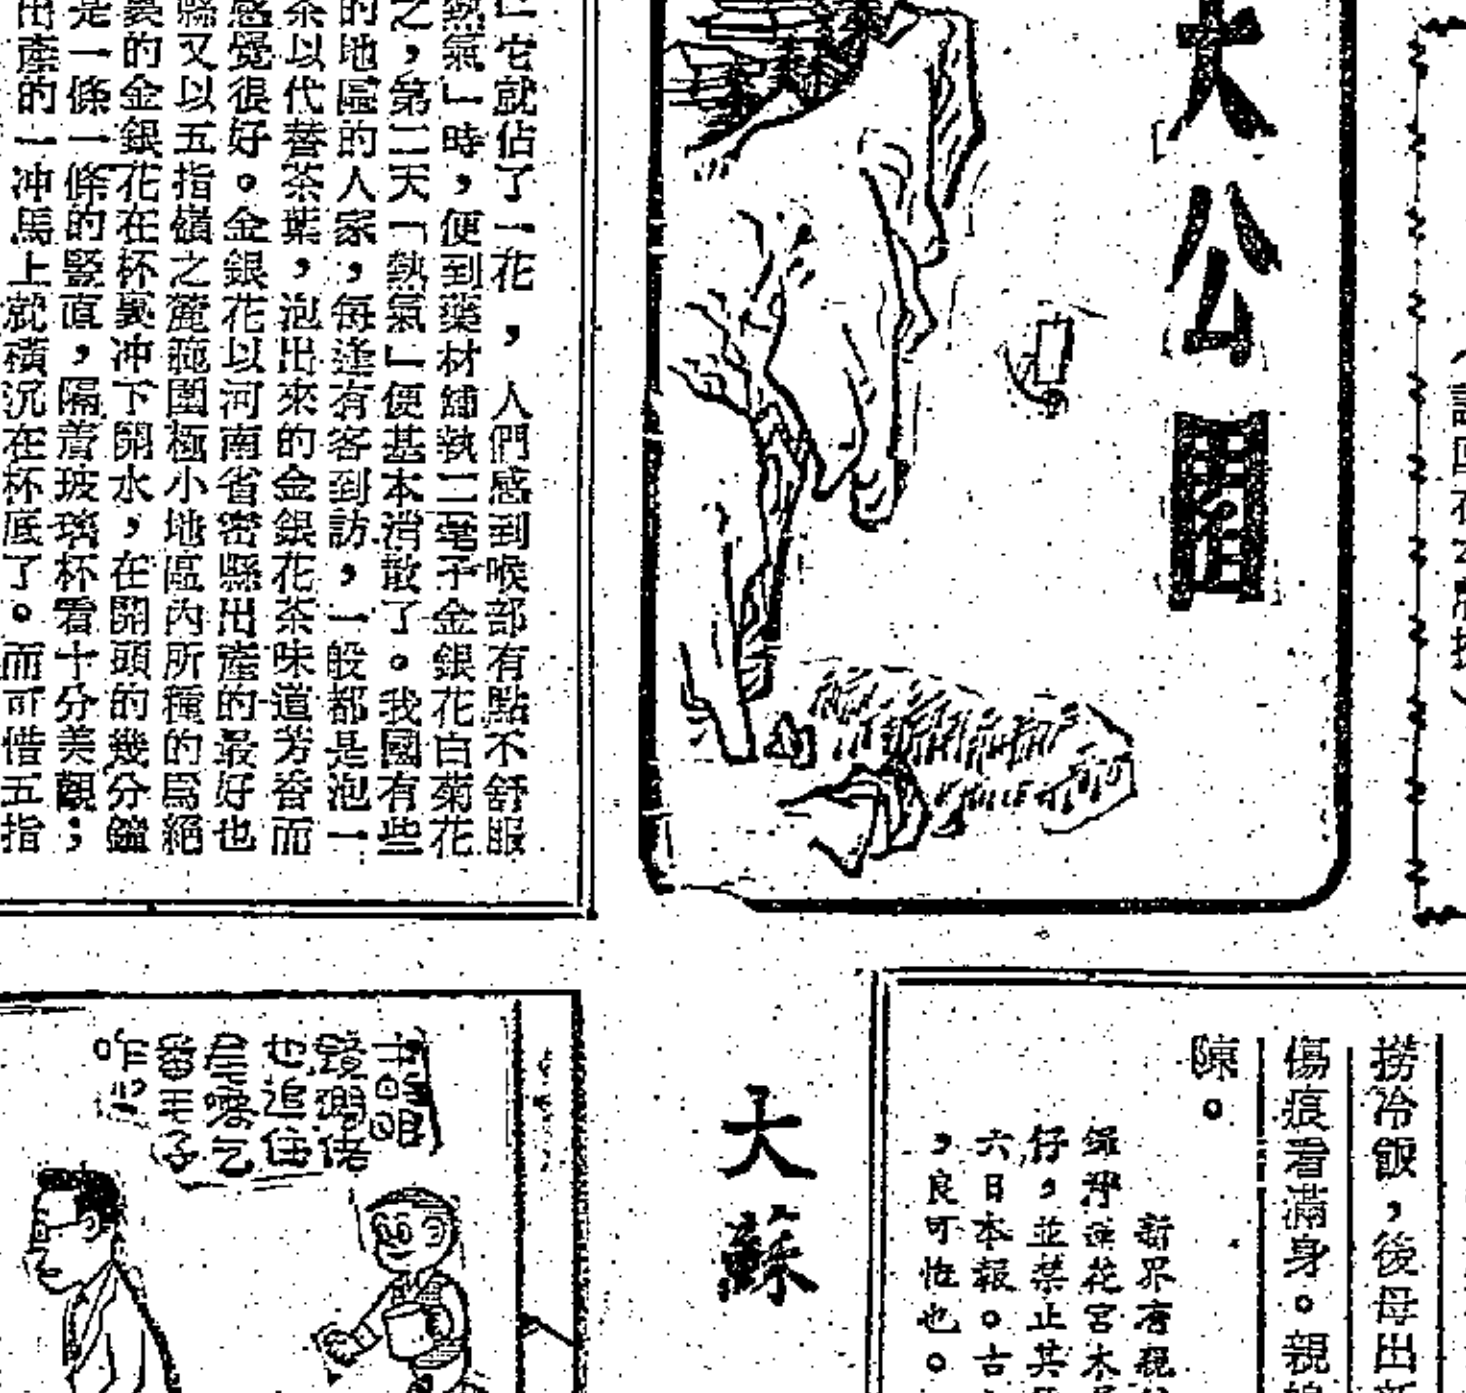 大公園
仁它就佔了一花,人們感到喉部有點不舒服
熱氣」時,便到藥材舖執二毫子金銀花白菊花
之,第二天「熱氣」便基本消散了。我國有些
的地區的人家,每逢有客到訪,一般都是泡一
茶以代替茶葉,泡出來的金銀花茶味道芳香而
感覺很好。金銀花以河南省密縣出產的最好也
縣又以五指嶺之麓範圍極小地區內所種的爲絕
裏的金銀花在杯裏冲下開水,在開頭的幾分鐘
是一條一條的豎直,隔着玻璃杯看十分美觀;
出產的一冲馬上就橫沉在杯底了。而可惜五指
撈冷飯,後母出
傷痕看滿身。親
陳。
新界有親
蓮花宮木
仔,並禁止其
六日本報。古
,良可怪也。
大蘇
也追住